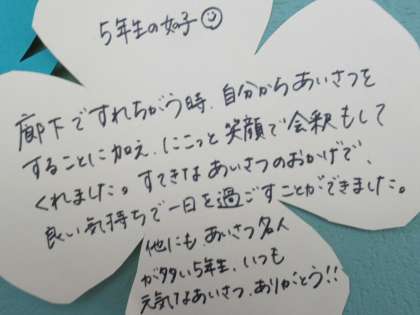 5年生の女子☺
廊下ですれちがう時、自分からあいさつを
することに加え、にこっと笑顔で会釈もして
くれました。すてきなあいさつのおかげで、
良い気持ちで一日を過ごすことができました。
他にも、あいさつ名人
が多い5年生、いつも
元気なあいさつ、ありがとう!!